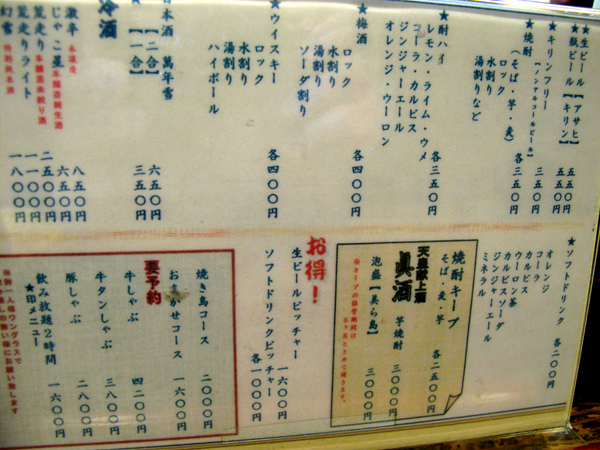 ★生ビール【アサヒ】 五五〇円
★瓶ビール【キリン】 五五〇円
★キリンフリー 三五〇円
【ノンアルコールビール】
★焼酎
（そば・芋・麦） 各三五〇円
ロック
水割り
湯割りなど
★酎ハイ
レモン・ライム・ウメ 各三五〇円
コーラ・カルピス
ジンジャーエール
オレンジ・ウーロン
★梅酒
ロック 各四〇〇円
水割り
湯割り
ソーダ割り
★ウイスキー 各四〇〇円
ロック
水割り
湯割り
ハイボール
日本酒 萬年雪
【二合】 六五〇円
【一合】 三五〇円
冷酒
激辛 本醸造 八五〇円
じゃこ星 本醸造純生酒 六五〇円
荒走り 本醸造未搾り酒 二五〇〇円
荒走りライト 一一〇〇円
幻 特別純米酒 一八〇〇円
★ソフトドリンク 各二〇〇円
オレンジ
コーラ
カルピス
ウーロン茶
カルピスソーダ
ジンジャーエール
ミネラル
焼酎キープ
そば・麦・芋 各二五〇〇円
天皇献上酒
眞酒 芋焼酎 三〇〇〇円
泡盛【美ら島】 三〇〇〇円
お得！
生ビールピッチャー 一六〇〇円
ソフトドリンクピッチャー 各一〇〇〇円
焼き鳥コース 二〇〇〇円
おまかせコース 一六〇〇円
要予約
牛しゃぶ 四二〇〇円
牛タンしゃぶ 三八〇〇円
豚しゃぶ 二八〇〇円
飲み放題２時間 一六〇〇円
★印メニュー